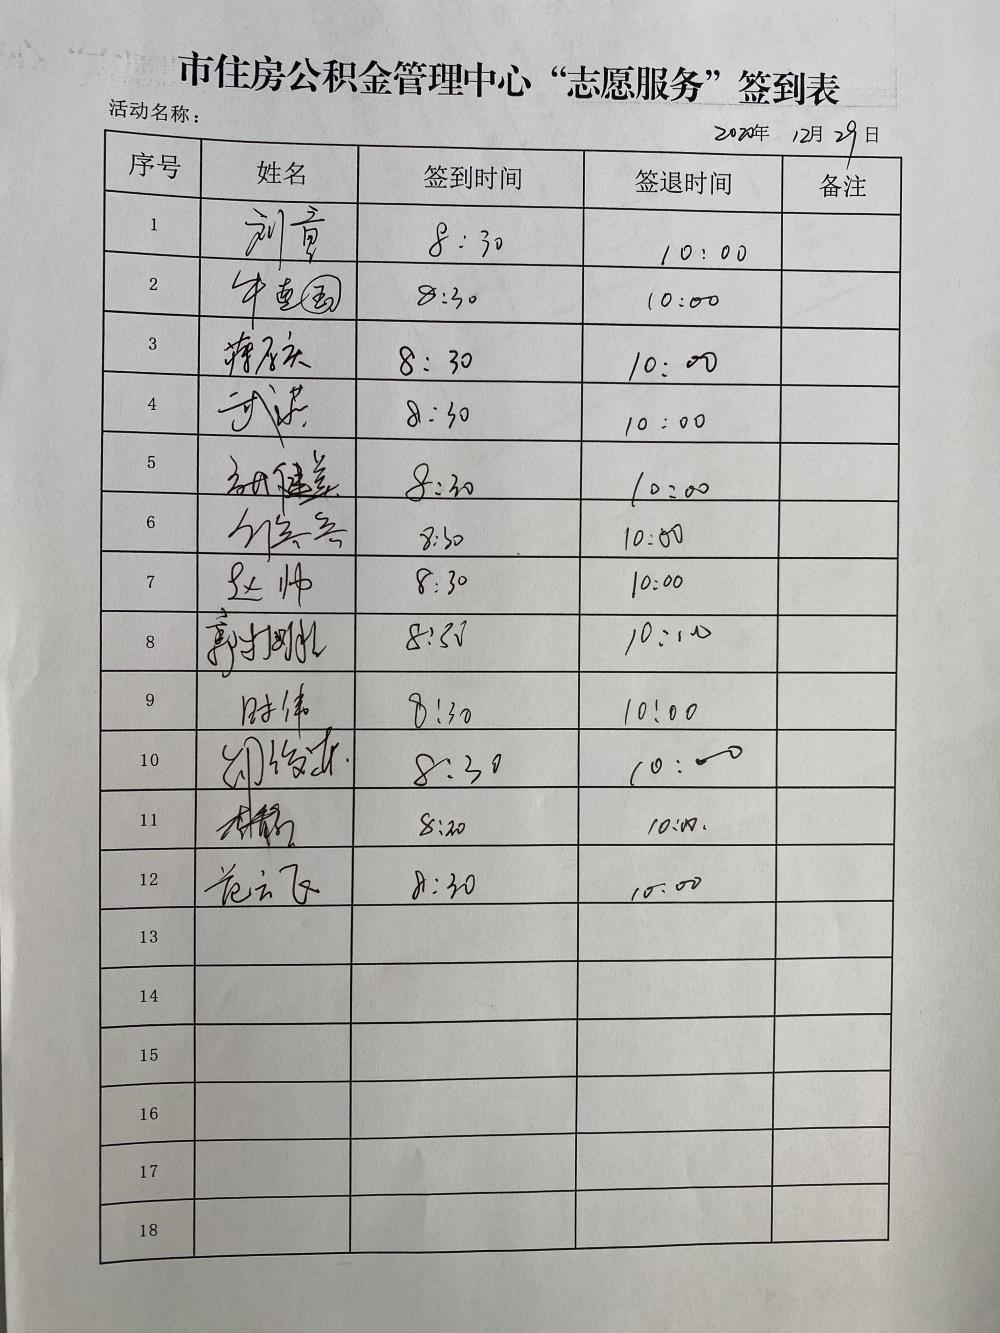 市住房公积金管理中心“志愿服务”签到表
活动名称：
2020年 12月29日
序号 姓名 签到时间 签退时间 备注
1 刘章 8:30 10:00
2 牛惠国 8:30 10:00
3 8:30 10:00
4 武洪 8:30 10:00
5 胡健美 8:30 10:00
6 刘兵兵 8:30 10:00
7 赵帅 8:30 10:00
8 8:30 10:00
9 时伟 8:30 10:00
10 8:30 10:00
11 林静 8:30 10:00.
12 范云飞 8:30 10:00
13
14
15
16
17
18